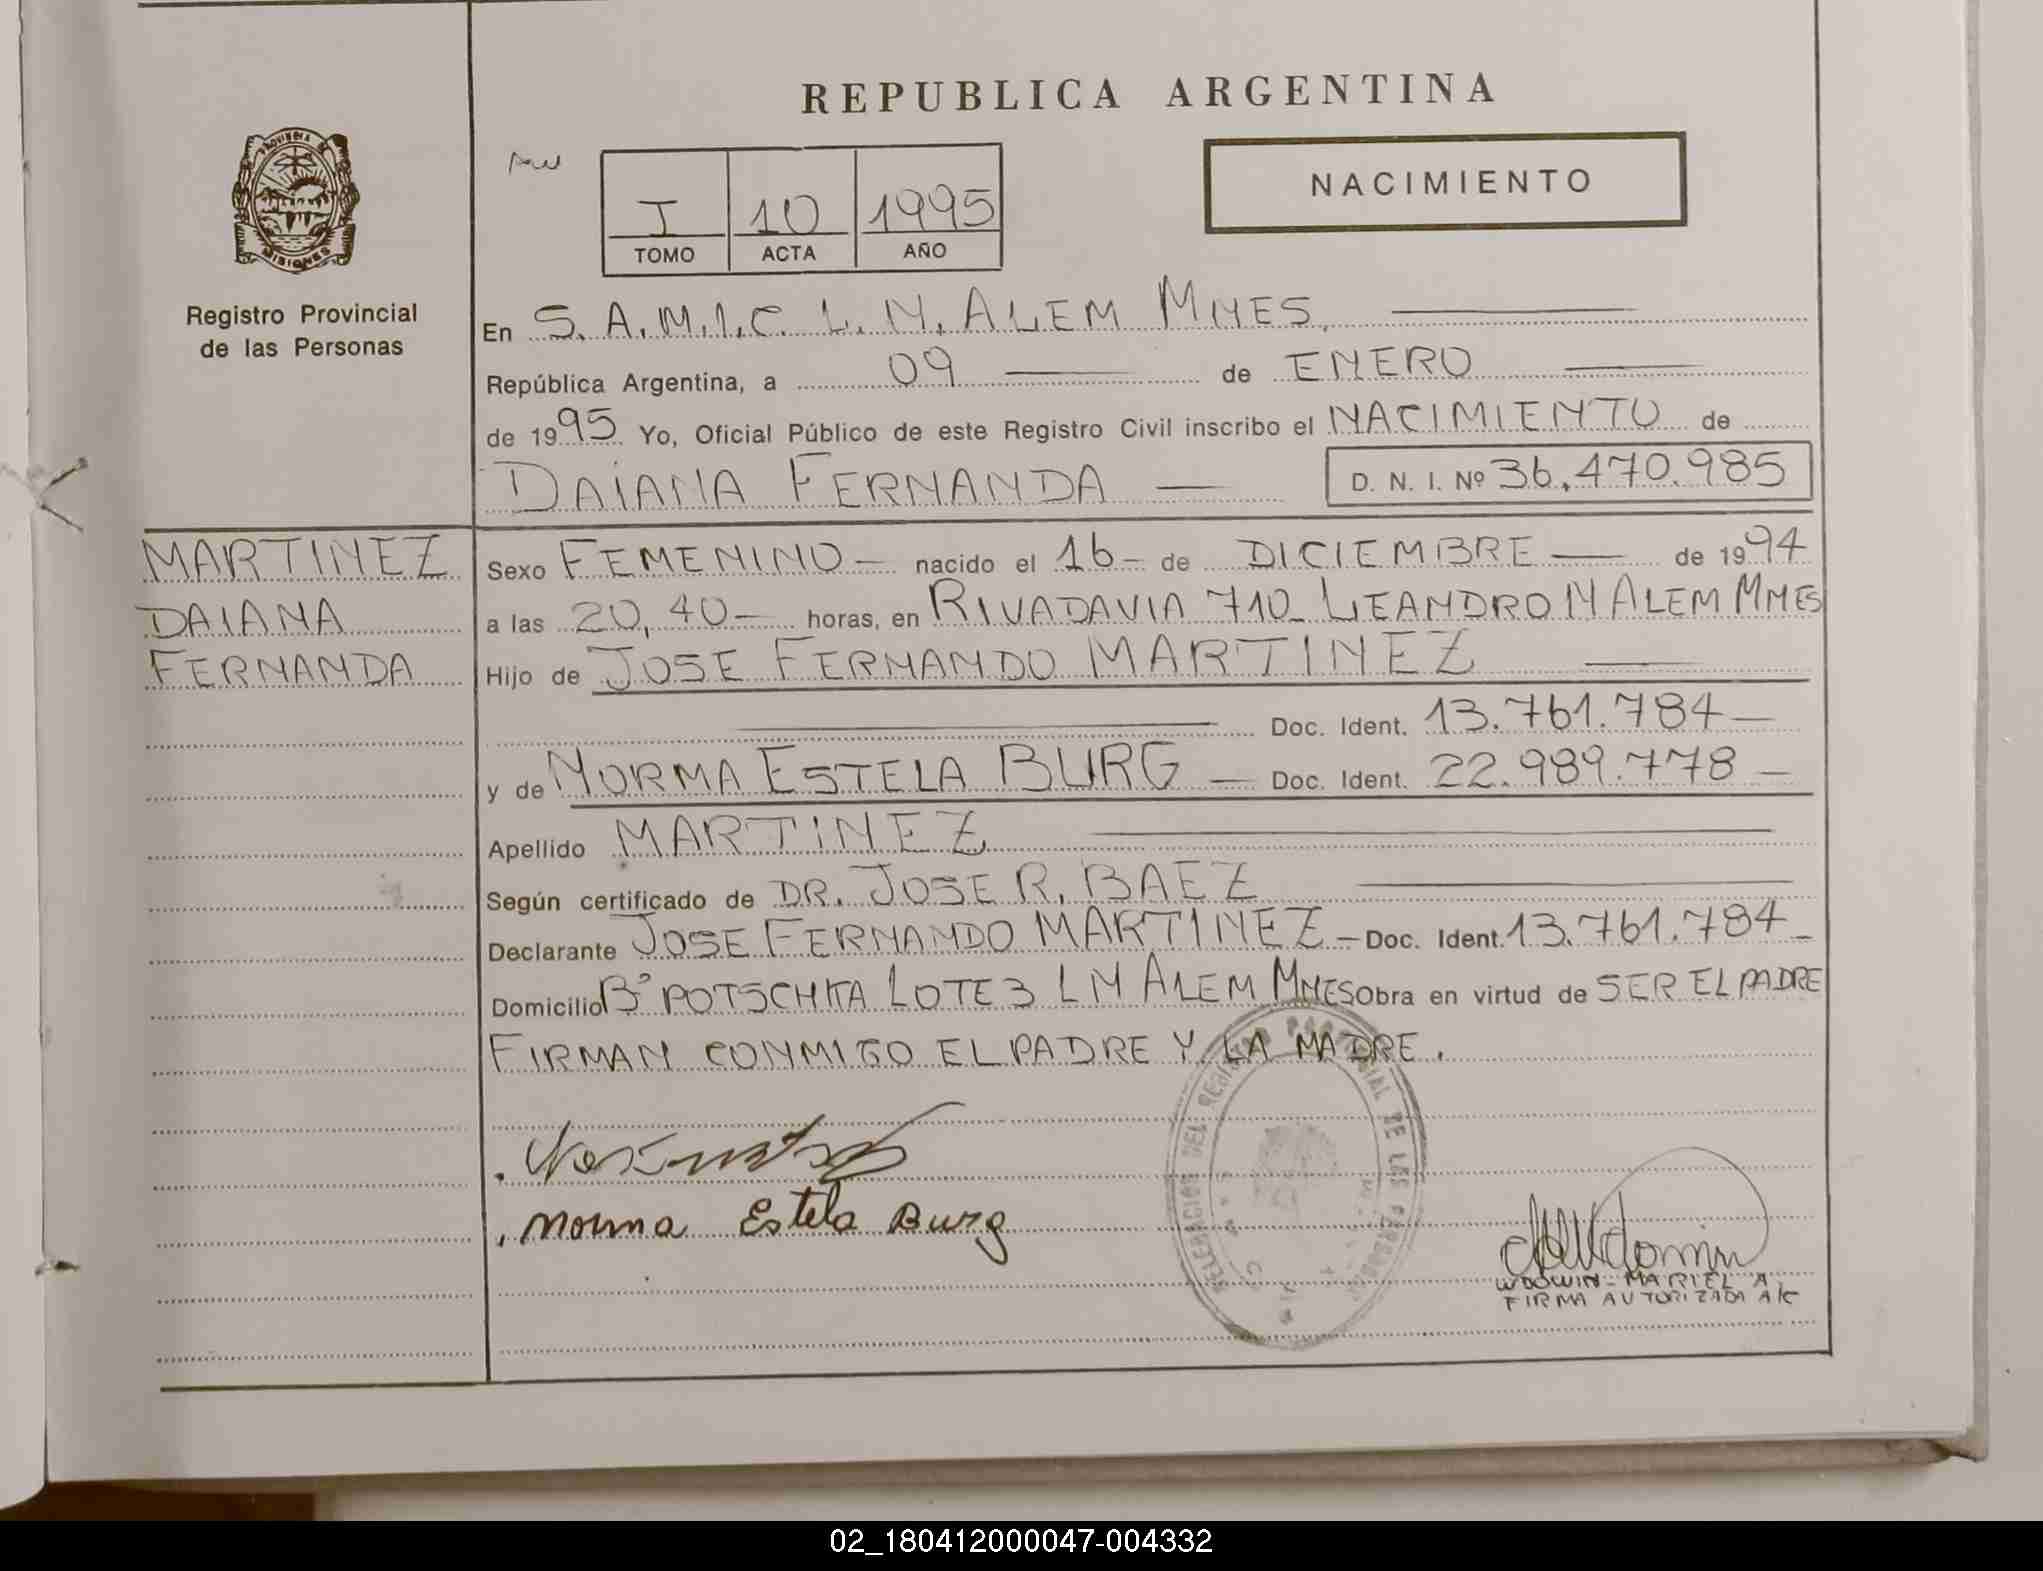 REPUBLICA ARGENTINA
PROVINCIA DE
MISIONES
Registro Provincial
de las Personas
I 10 1995
TOMO ACTA AÑO
NACIMIENTO
En S.A.M.I.C. L.N. ALEM MNES.
República Argentina, a 09 de ENERO
de 1995 Yo, Oficial Público de este Registro Civil inscribo el NACIMIENTO de
DAIANA FERNANDA — D. N. I. Nº 36.470.985
MARTINEZ
DAIANA
FERNANDA
Sexo FEMENINO — nacido el 16 — de DICIEMBRE — de 1994
a las 20,40 — horas, en RIVADAVIA 710_ LEANDRO N ALEM MNES
Hijo de JOSE FERNANDO MARTINEZ —
Doc. Ident. 13.761.784 —
y de NORMA ESTELA BURG — Doc. Ident. 22.989.778 —
Apellido MARTINEZ
Según certificado de DR. JOSE R. BAEZ
Declarante JOSE FERNANDO MARTINEZ — Doc. Ident. 13.761.784 —
Domicilio Bº POTSCHKA LOTE 3 L N ALEM MNES Obra en virtud de SER EL PADRE
FIRMAN CONMIGO EL PADRE Y LA MADRE.
DELEGACION DEL REGISTRO PROVINCIAL DE LAS PERSONAS
Norma Estela Burg
WDOWIN - MARIEL A.
FIRMA AUTORIZADA A/C
02_180412000047-004332